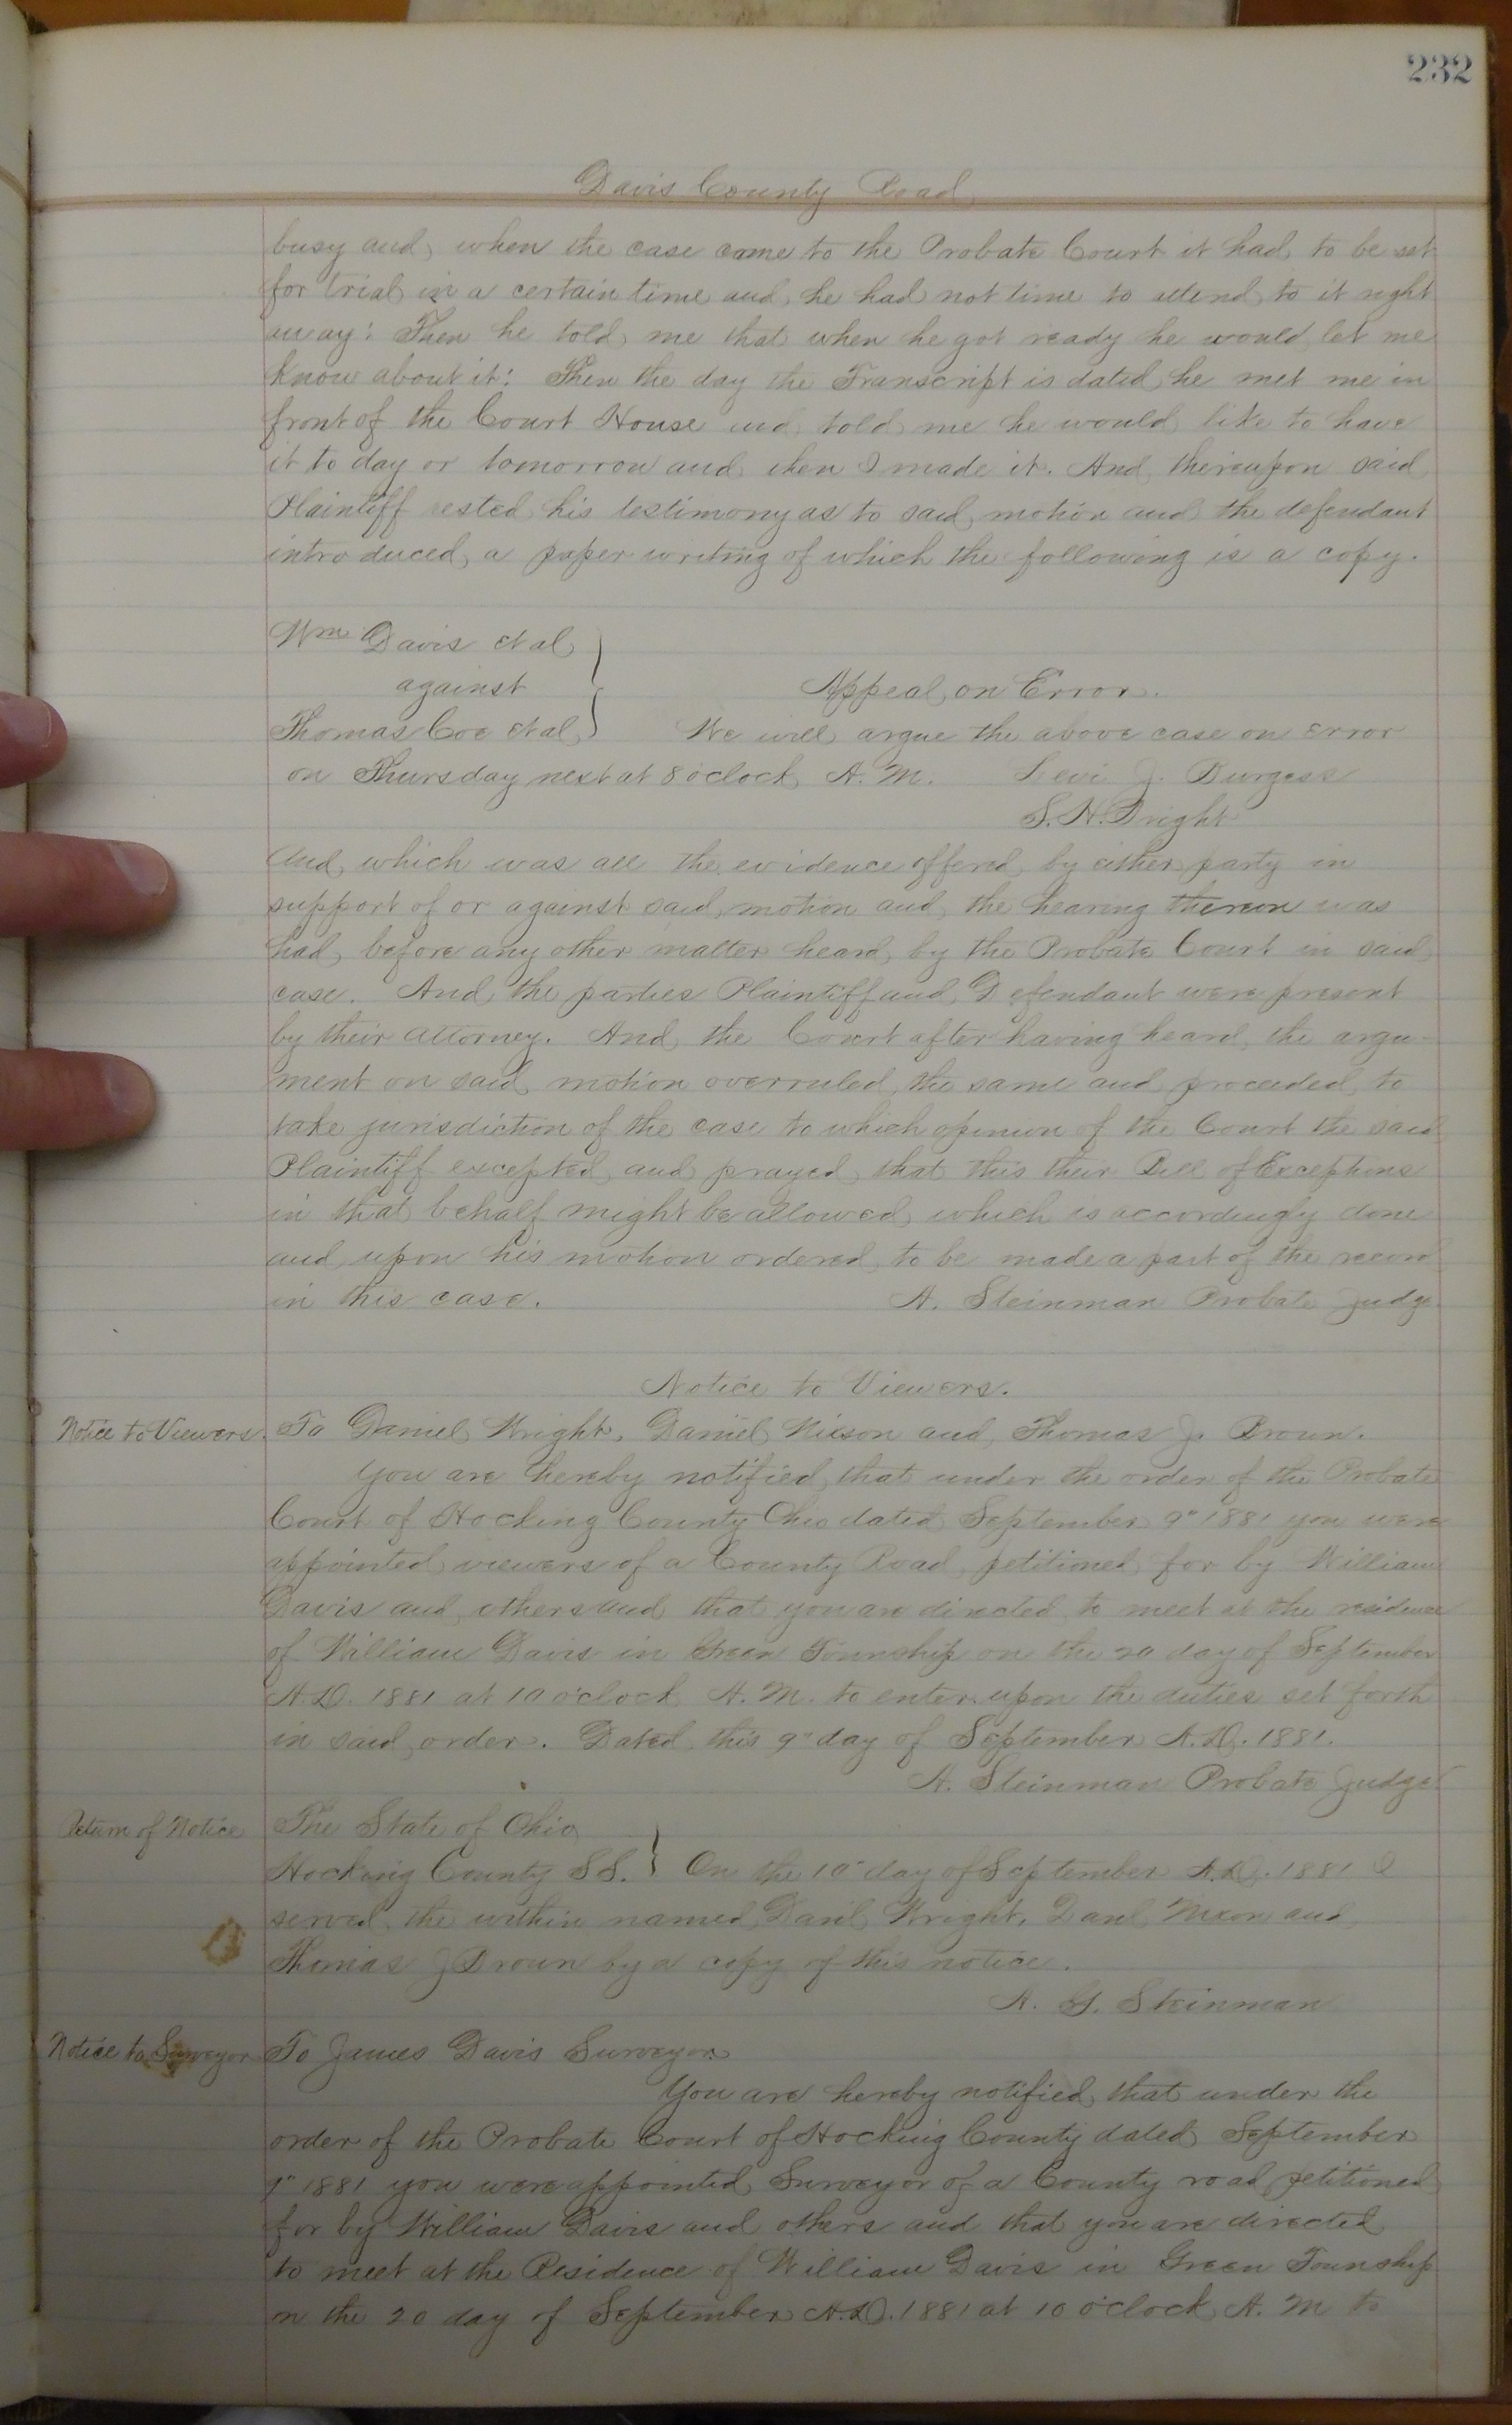 232
Davis County Road
busy and when the case came to the Probate Court it had to be set
for trial in a certain time and he had not time to attend to it right
away: Then he told me that when he got ready he would let me
know about it: Then the day the Transcript is dated he met me in
front of the Court House and told me he would like to have
it to day or tomorrow and then I made it. And thereupon said
Plaintiff rested his testimony as to said motion and the defendant
introduced a paper writing of which the following is a copy.
Wm Davis et al
against
Appeal on Error.
Thomas Coe et al } We will argue the above case on error
on Thursday next at 8 oclock A. M. Levi J. Burgess
S. H. Bright
And which was all the evidence offered by either party in
support of or against said motion and the hearing thereon was
had before any other matter heard by the Probate Court in said
case. And the parties Plaintiff and Defendant were present
by their attorney. And the Court after having heard the argu-
ment on said motion overruled the same and proceeded to
take jurisdiction of the case to which opinion of the Court the said
Plaintiff excepted and prayed that this their Bill of Exceptions
in that behalf might be allowed which is accordingly done
and upon his motion ordered to be made a part of the record
in this case. A. Steinman Probate Judge
Notice to Viewers.
Notice to Viewers. To Daniel Wright, Daniel Nixson and Thomas J. Brown.
You are hereby notified that under the order of the Probate
Court of Hocking County Ohio dated September 9" 1881 you were
appointed viewers of a County Road petitioned for by William
Davis and others and that you are directed to meet at the residence
of William Davis in Green Township on the 20 day of September
A.D. 1881 at 10 o'clock A. M. to enter upon the duties set forth
in said order. Dated this 9" day of September A.D. 1881.
A. Steinman Probate Judge
Return of Notice The State of Ohio
Hocking County SS. } On the 10" day of September A.D. 1881 I
served the within named Danl Wright, Danl Nixon and
Thomas J Brown by a copy of this notice.
A. G. Steinman
Notice to Surveyor To James Davis Surveyor
You are hereby notified that under the
order of the Probate Court of Hocking County dated September
9" 1881 you were appointed Surveyor of a County road petitioned
for by William Davis and others and that you are directed
to meet at the Residence of William Davis in Green Township
on the 20 day of September A.D. 1881 at 10 o'clock A. M to